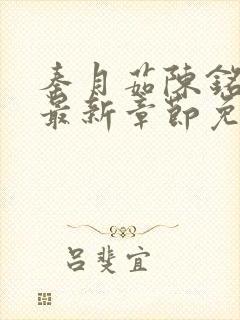 秦月茹陳銘
最新章節免
呂斐宜